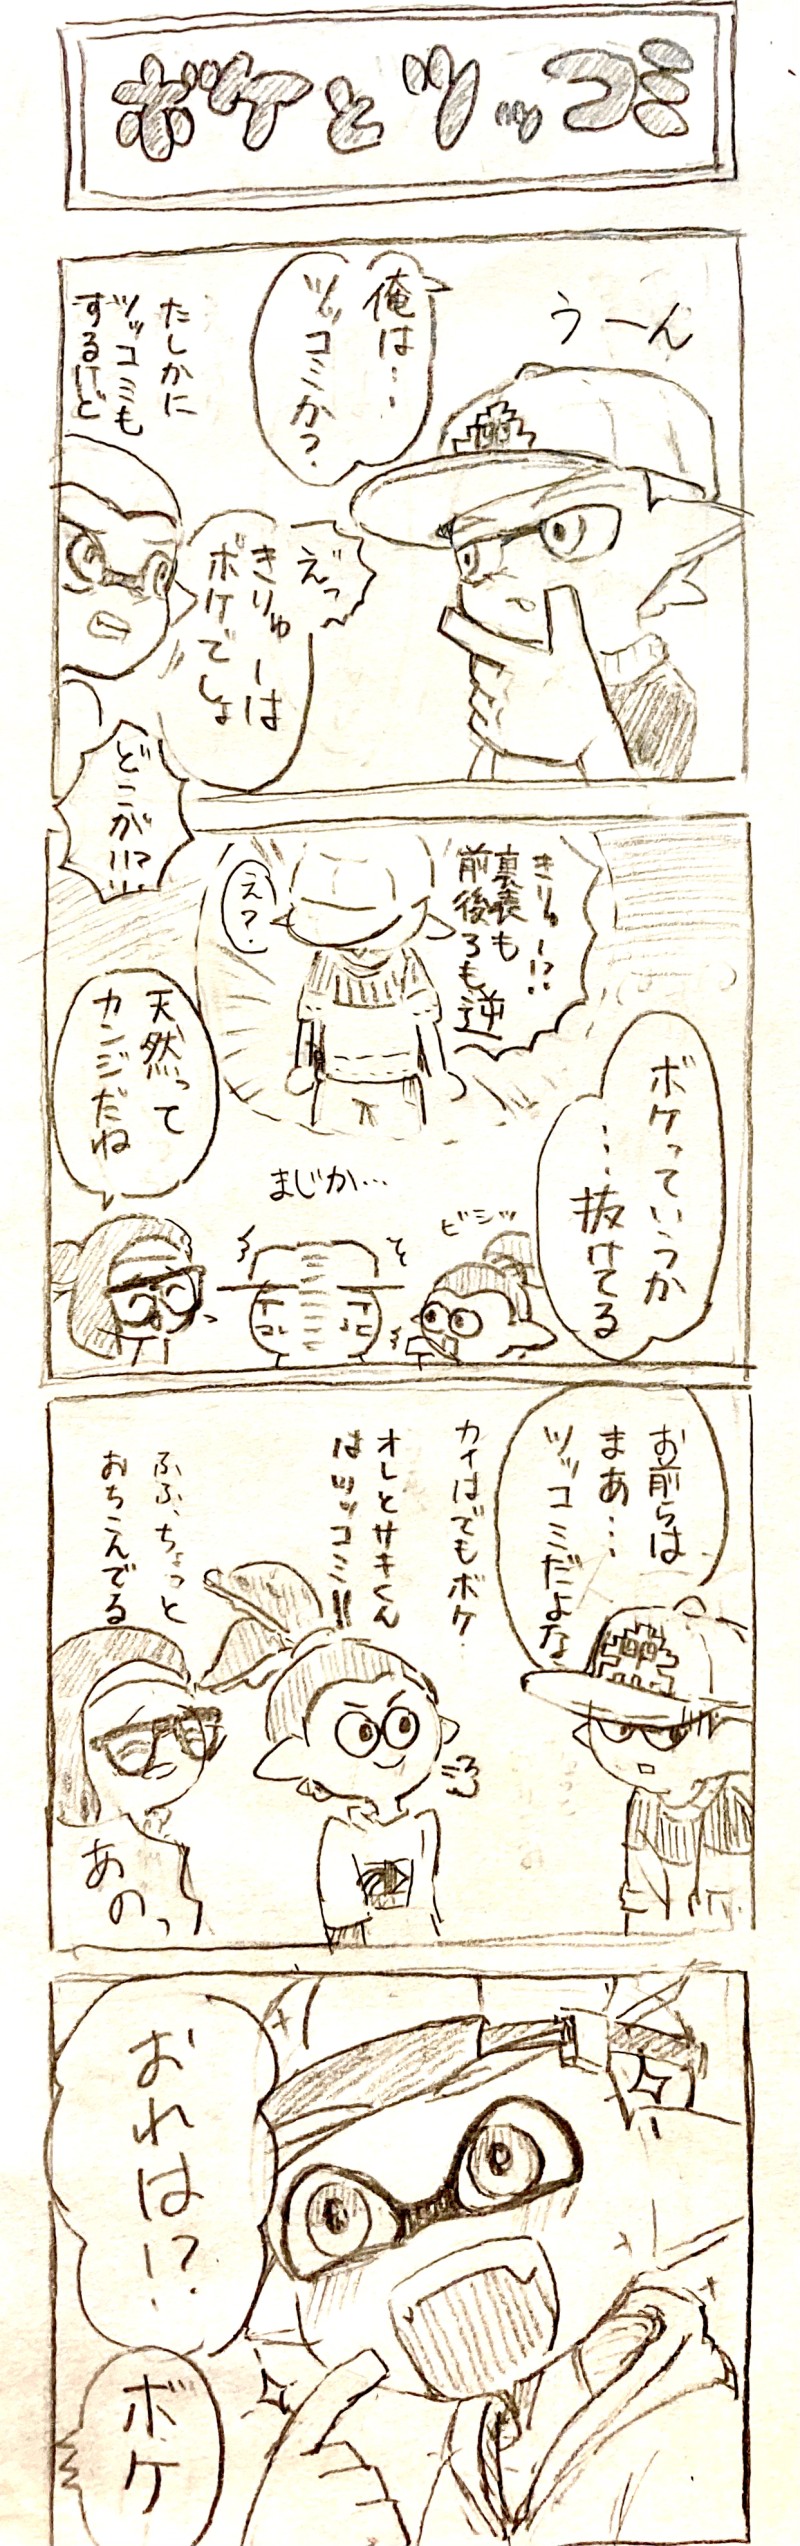 ボケとツッコミ
うーん
俺は…
ツッコミか?
えっ
きりゅーは
ボケでしょ
たしかに
ツッコミも
するけど
どこが!?
きりゅー!?
裏表も
前後ろも逆
え?
ボケっていうか
…抜けてる
ビシッ
まじか…
天然って
カンジだね
お前らは
まあ…
ツッコミだよな
カイはでもボケ
オレとサキくん
はツッコミ!!
ふふ、ちょっと
おちこんでる
あのっ
おれは!?
ボケ